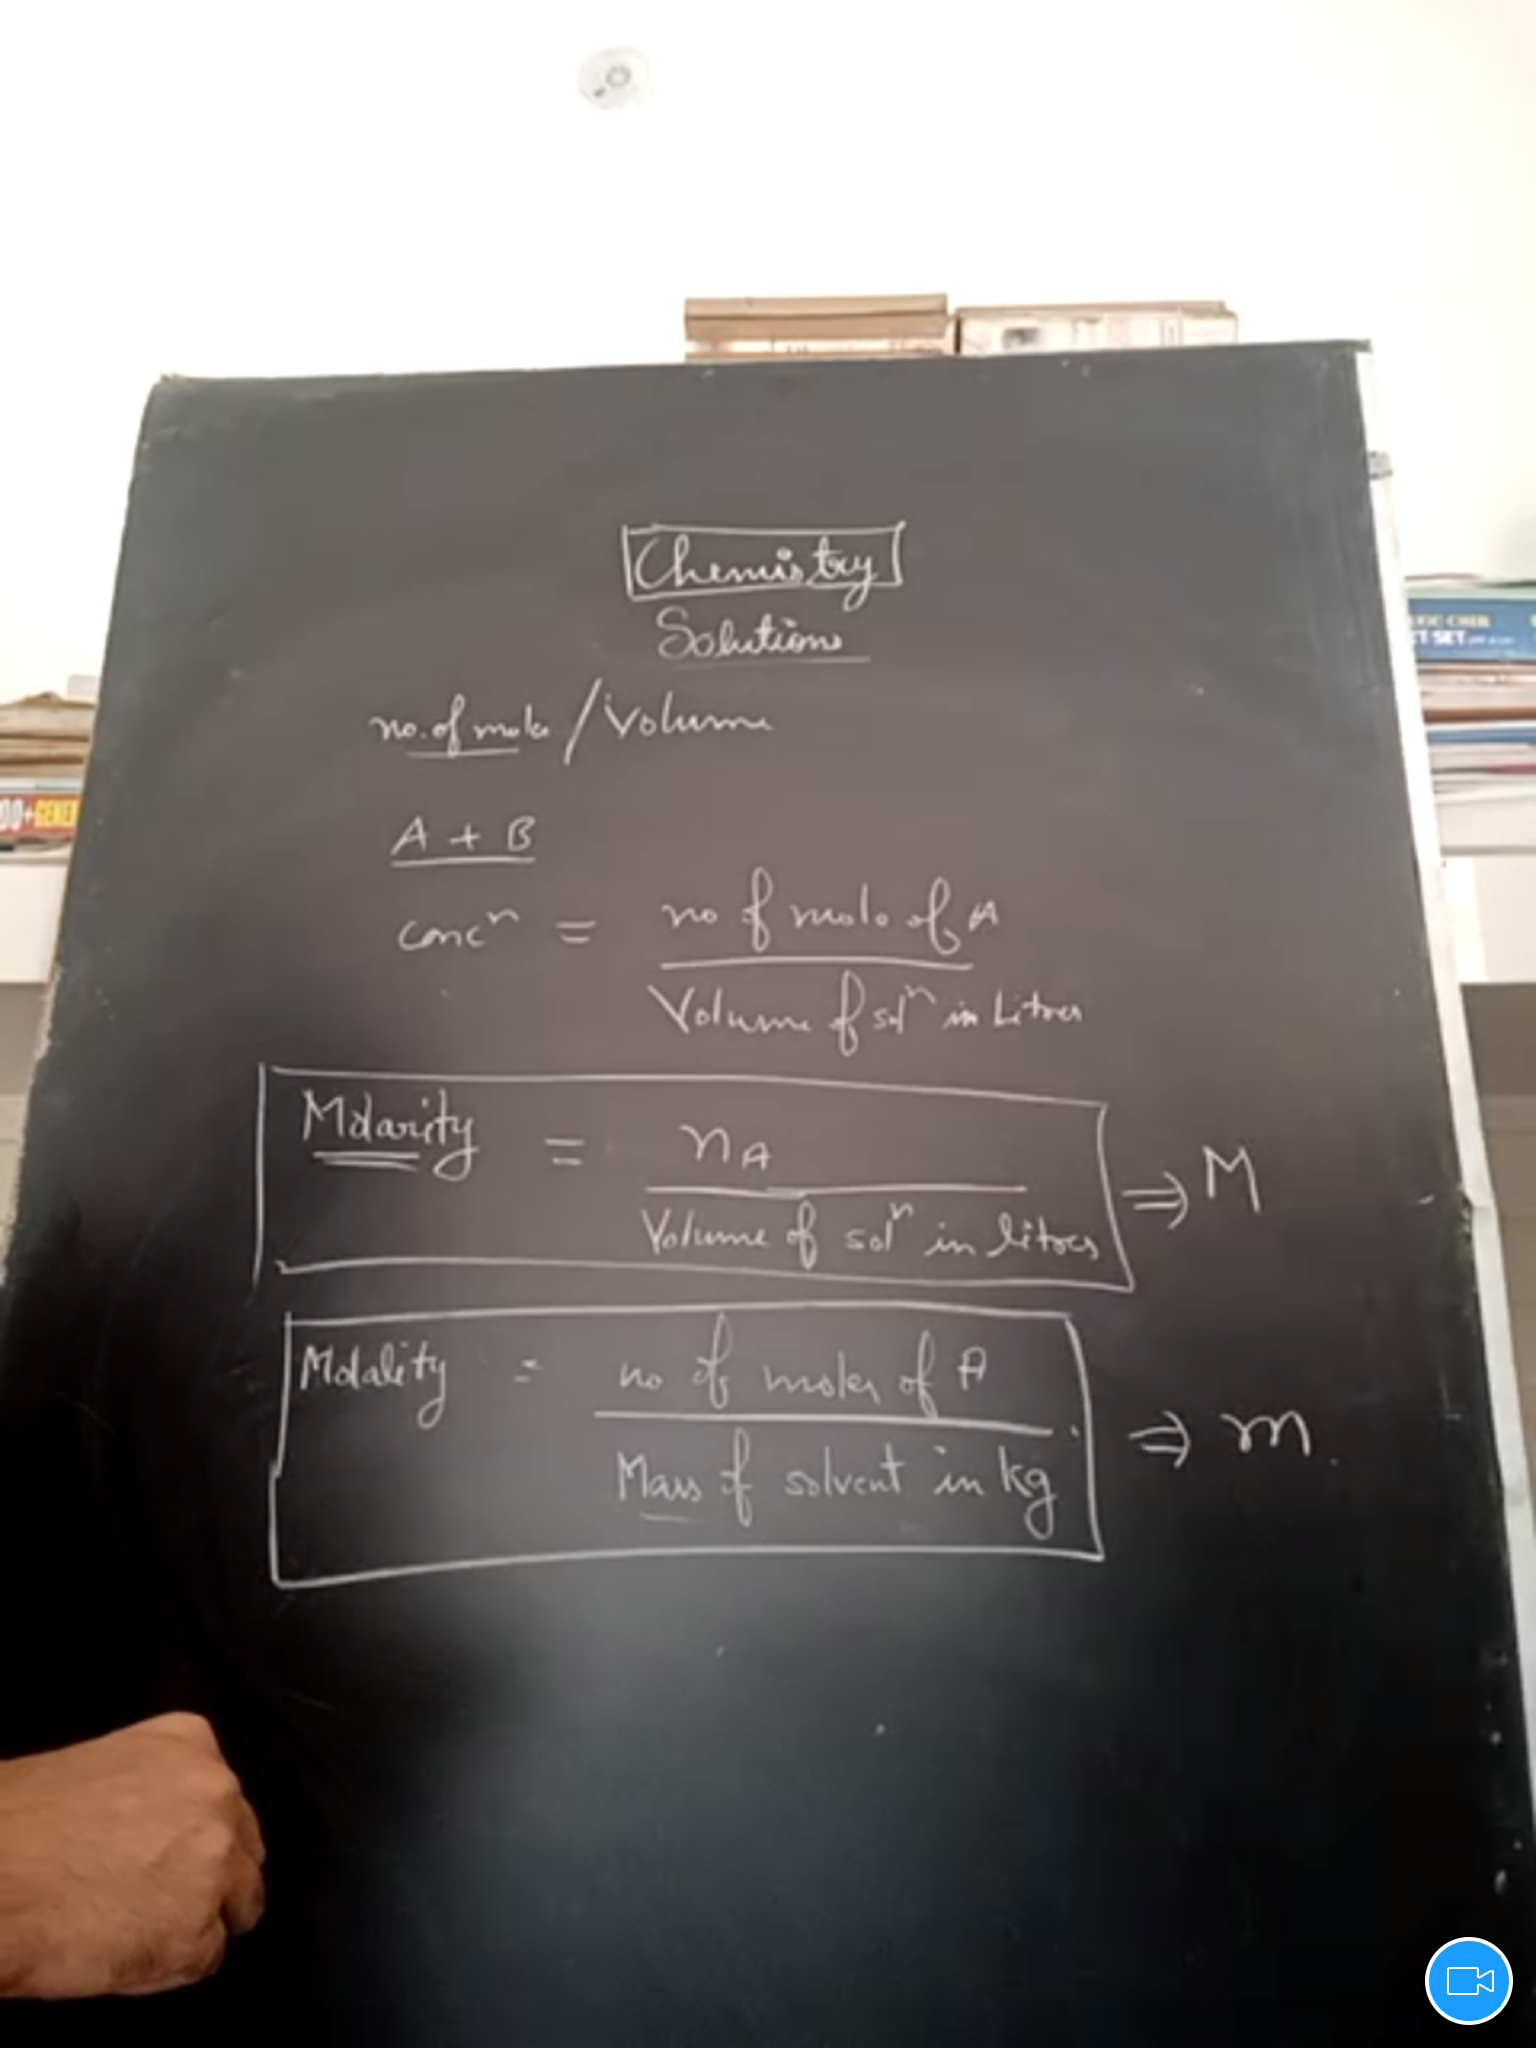 Chemistry
Solutions
no. of moles / Volume
A + B
concⁿ = no of mols of A
Volume of solⁿ in Litres
Molarity = nA
Volume of solⁿ in litres ⇒ M
Molality = no of moles of A
Mass of solvent in kg ⇒ m.
00+GENER
SET